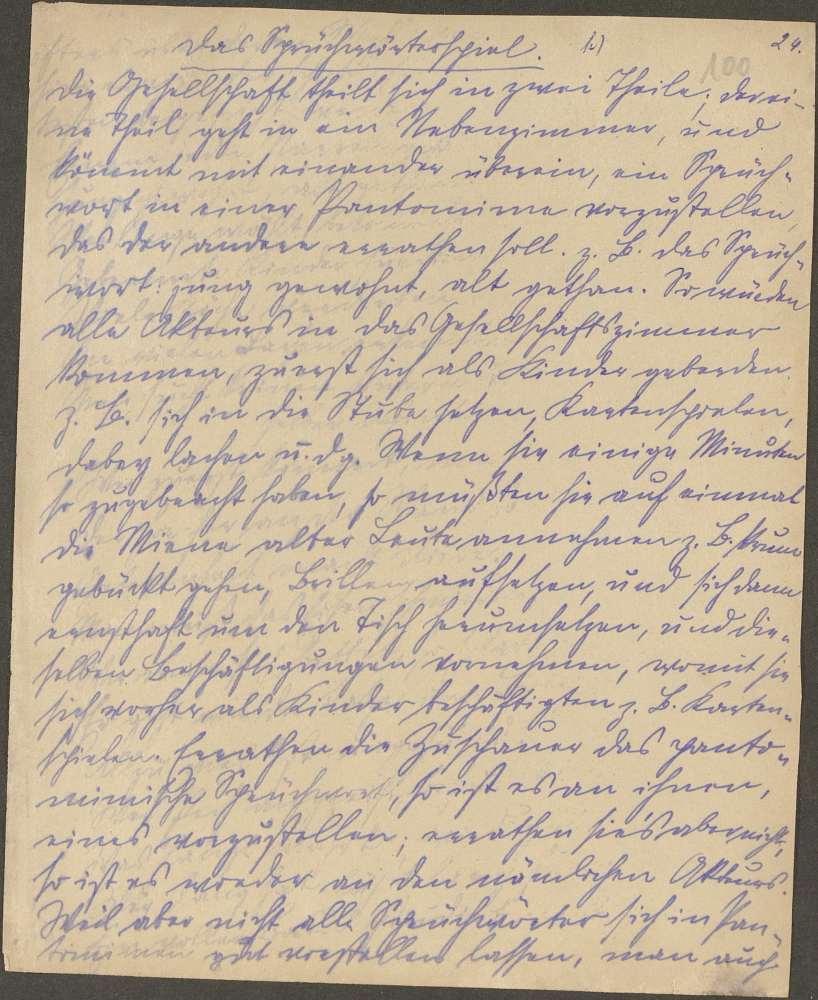 Das Sprüchwörterspiel. b) 24.
100
Die Gesellschaft theilt sich in zwei Theile; der ei-
ne Theil geht in ein Nebenzimmer, und
kömmt mit einander überein, ein Sprüch-
wort in einer Pantomime vorzustellen,
das der andere errathen soll. z. B. das Sprüch-
wort: jung gewohnt, alt gethan. So würden
alle Akteurs in das Gesellschaftszimmer
kommen, zuerst sich als Kinder geberden.
z. B. sich in die Stube setzen, Kartenspielen,
dabey lachen u. dg. Wenn sie einige Minuten
so zugebracht haben, so müßten sie auf einmal
die Miene alter Leute annehmen z. B. krum
gebückt gehen, Brillen aufsetzen, und sich dann
ernsthaft um den Tisch herumsetzen, und die-
selben Beschäftigungen vornehmen, womit sie
sich vorher als Kinder beschäftigten z. B. Karten-
spielen. Errathen die Zuschauer das panto-
mimische Sprüchwort, so ist es an ihnen,
eines vorzustellen; errathen sie's aber nicht,
so ist es wieder an den nämlichen Akteurs.
Weil aber nicht alle Sprüchwörter sich in Pan-
tomimen gut vorstellen lassen, man auch